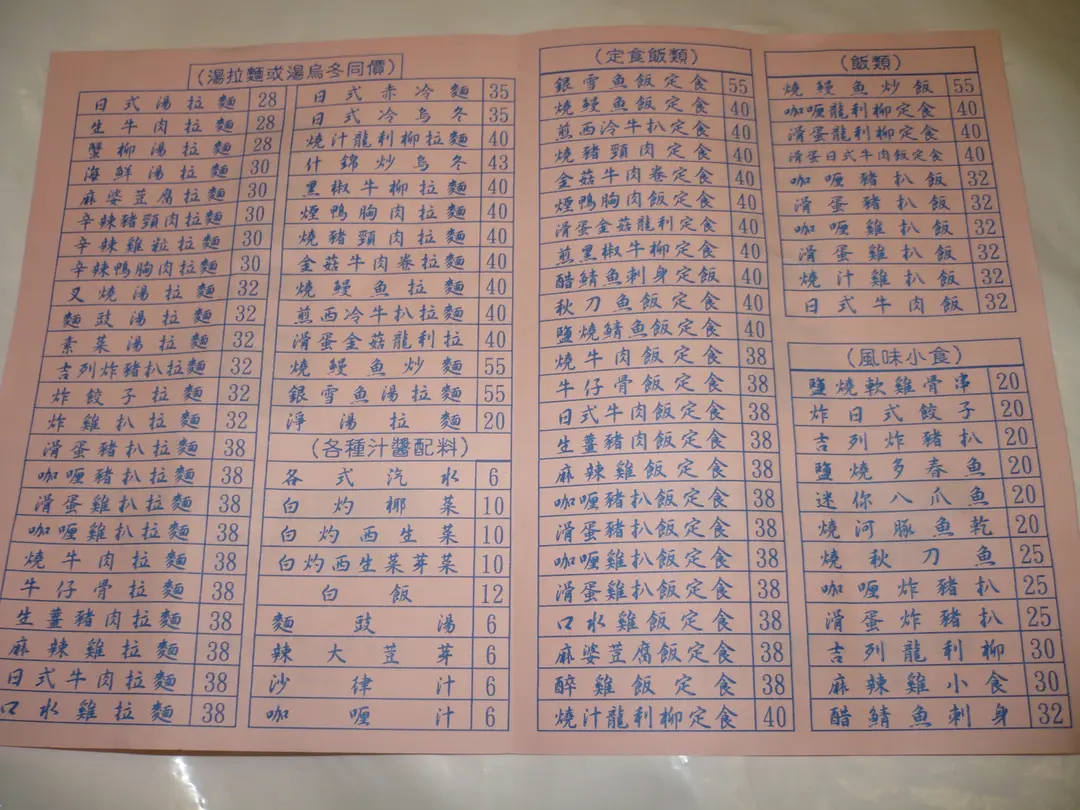 （湯拉麵或湯烏冬同價）
日式湯拉麵 28
生牛肉拉麵 28
蟹柳湯拉麵 28
海鮮湯拉麵 30
麻婆荳腐拉麵 30
辛辣豬頸肉拉麵 30
辛辣雞粒拉麵 30
辛辣鴨胸肉拉麵 30
叉燒湯拉麵 32
麵豉湯拉麵 32
素菜湯拉麵 32
吉列炸豬扒拉麵 32
炸餃子拉麵 32
炸雞扒拉麵 32
滑蛋豬扒拉麵 38
咖喱豬扒拉麵 38
滑蛋雞扒拉麵 38
咖喱雞扒拉麵 38
燒牛肉拉麵 38
牛仔骨拉麵 38
生薑豬肉拉麵 38
麻辣雞拉麵 38
日式牛肉拉麵 38
口水雞拉麵 38
日式赤冷麵 35
日式冷烏冬 35
燒汁龍利柳拉麵 40
什錦炒烏冬 43
黑椒牛柳拉麵 40
煙鴨胸肉拉麵 40
燒豬頸肉拉麵 40
金菇牛肉卷拉麵 40
燒鰻魚拉麵 40
煎西冷牛扒拉麵 40
滑蛋金菇龍利拉 40
燒鰻魚炒麵 55
銀雪魚湯拉麵 55
淨湯拉麵 20
（各種汁醬配料）
各式汽水 6
白灼椰菜 10
白灼西生菜 10
白灼西生菜芽菜 10
白飯 12
麵豉湯 6
辣大荳芽 6
沙律汁 6
咖喱汁 6
（定食飯類）
銀雪魚飯定食 55
燒鰻魚飯定食 40
煎西冷牛扒定食 40
燒豬頸肉定食 40
金菇牛肉卷定食 40
煙鴨胸肉飯定食 40
滑蛋金菇龍利定食 40
煎黑椒牛柳定食 40
醋鯖魚刺身定飯 40
秋刀魚飯定食 40
鹽燒鯖魚飯定食 40
燒牛肉飯定食 38
牛仔骨飯定食 38
日式牛肉飯定食 38
生薑豬肉飯定食 38
麻辣雞飯定食 38
咖喱豬扒飯定食 38
滑蛋豬扒飯定食 38
咖喱雞扒飯定食 38
滑蛋雞扒飯定食 38
口水雞飯定食 38
麻婆荳腐飯定食 38
醉雞飯定食 38
燒汁龍利柳定食 40
（飯類）
燒鰻魚炒飯 55
咖喱龍利柳定食 40
滑蛋龍利柳定食 40
滑蛋日式牛肉飯定食 40
咖喱豬扒飯 32
滑蛋豬扒飯 32
咖喱雞扒飯 32
滑蛋雞扒飯 32
燒汁雞扒飯 32
日式牛肉飯 32
（風味小食）
鹽燒軟雞骨串 20
炸日式餃子 20
吉列炸豬扒 20
鹽燒多春魚 20
迷你八爪魚 20
燒河豚魚乾 20
燒秋刀魚 25
咖喱炸豬扒 25
滑蛋炸豬扒 25
吉列龍利柳 30
麻辣雞小食 30
醋鯖魚刺身 32